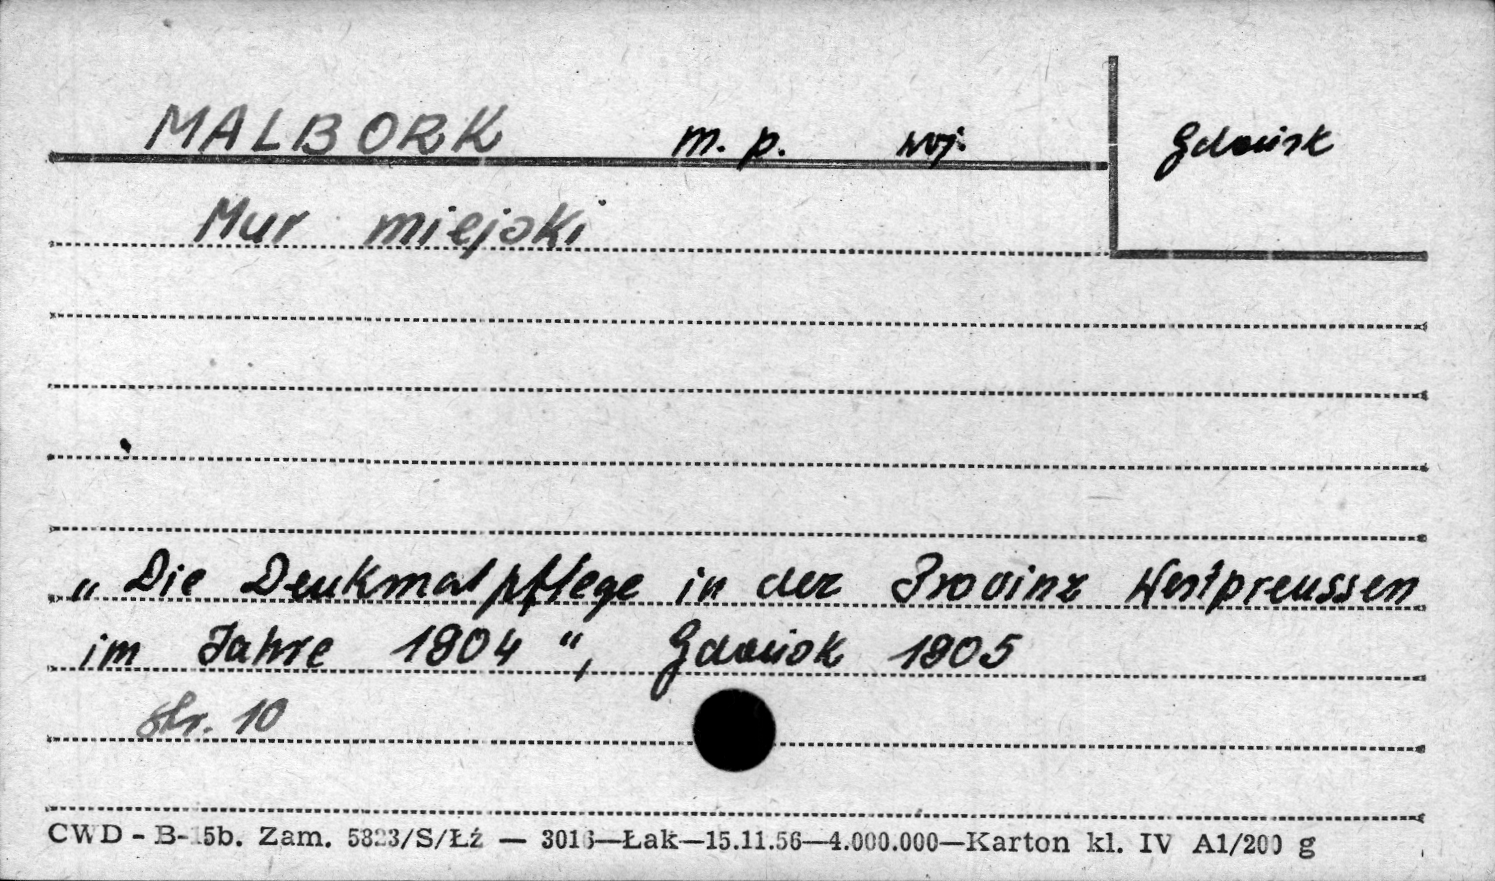 MALBORK m. p. woj. Gdańsk
Mur miejski
„Die Denkmalpflege in der Provinz Westpreussen
im Jahre 1904“, Gdańsk 1905
str. 10
CWD - B-15b. Zam. 5823/S/Łź — 3016—Łak—15.11.56—4.000.000—Karton kl. IV A1/200 g